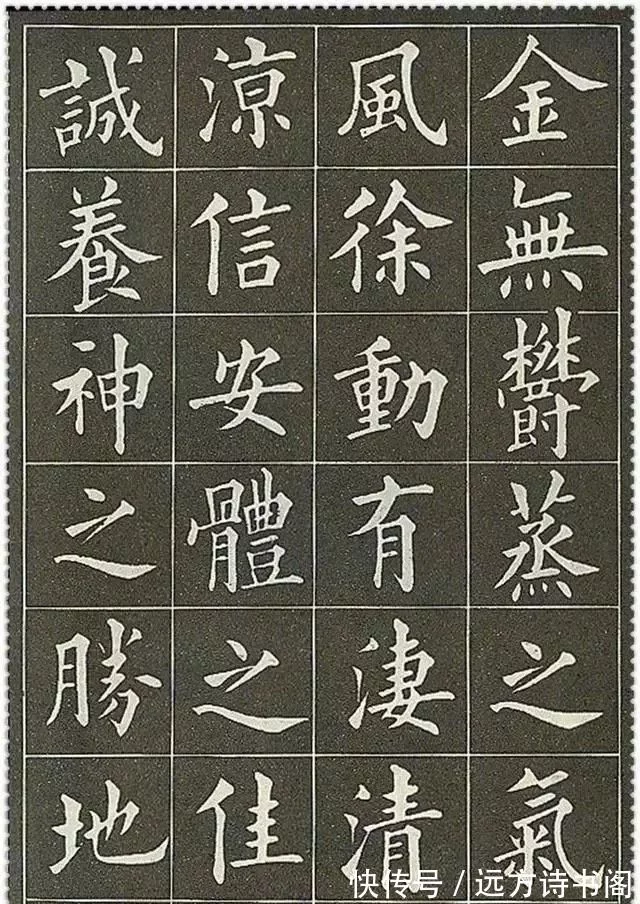 金無鬱蒸之氣
風徐動有淒清
涼信安體之佳
誠養神之勝地
快传号/远方诗书阁